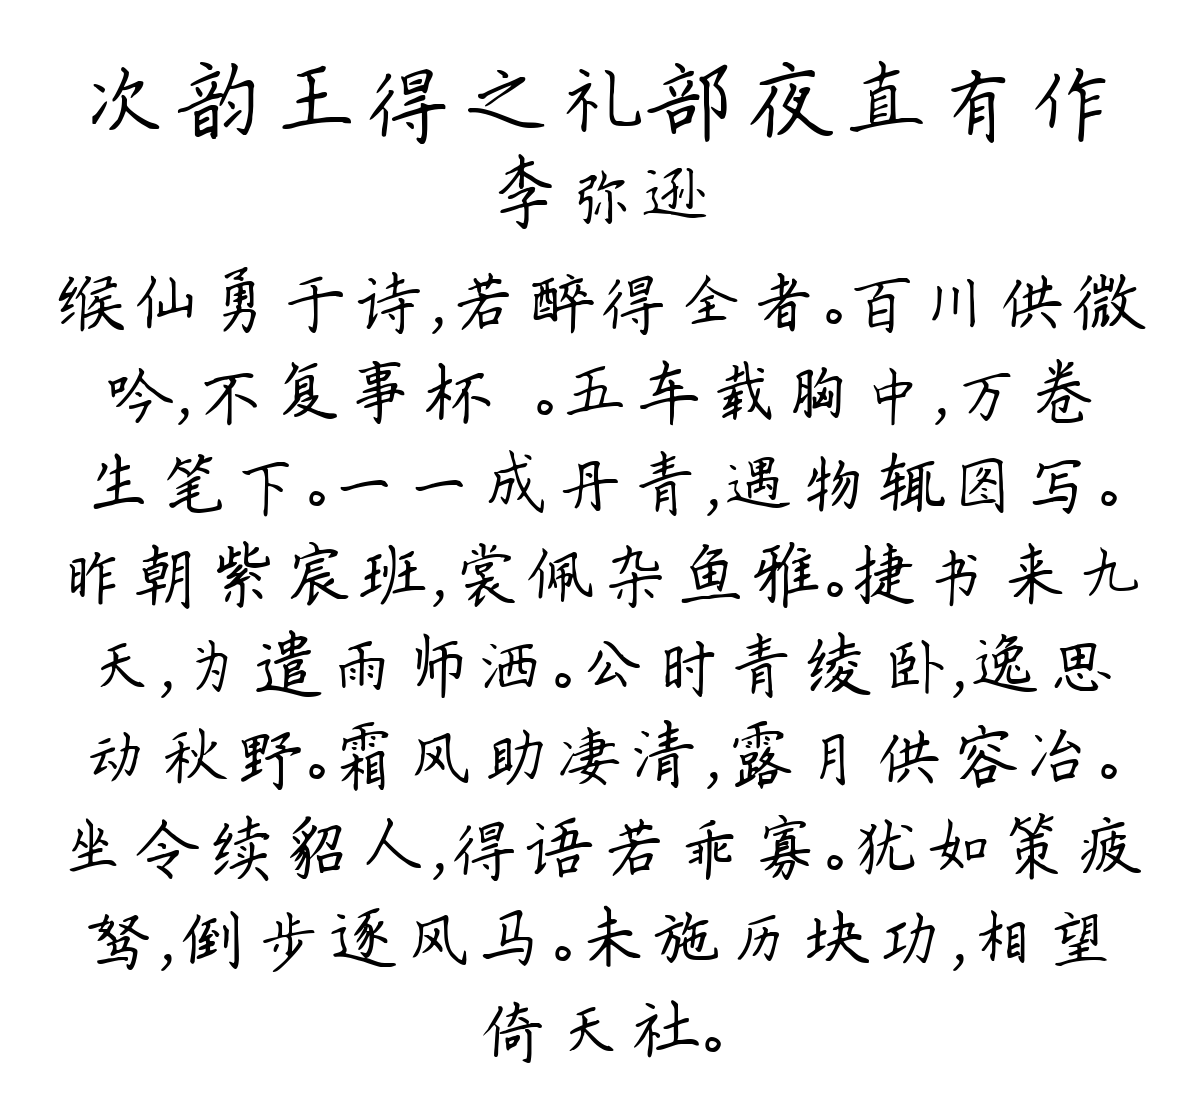 次韵王得之礼部夜直有作
李弥逊
缑仙勇于诗,若醉得全者。百川供微
吟,不复事杯 。五车载胸中,万卷
生笔下。一一成丹青,遇物辄图写。
昨朝紫宸班,裳佩杂鱼雅。捷书来九
天,为遣雨师洒。公时青绫卧,逸思
动秋野。霜风助凄清,露月供容冶。
坐令续貂人,得语若乖寡。犹如策疲
驽,倒步逐风马。未施历块功,相望
倚天社。